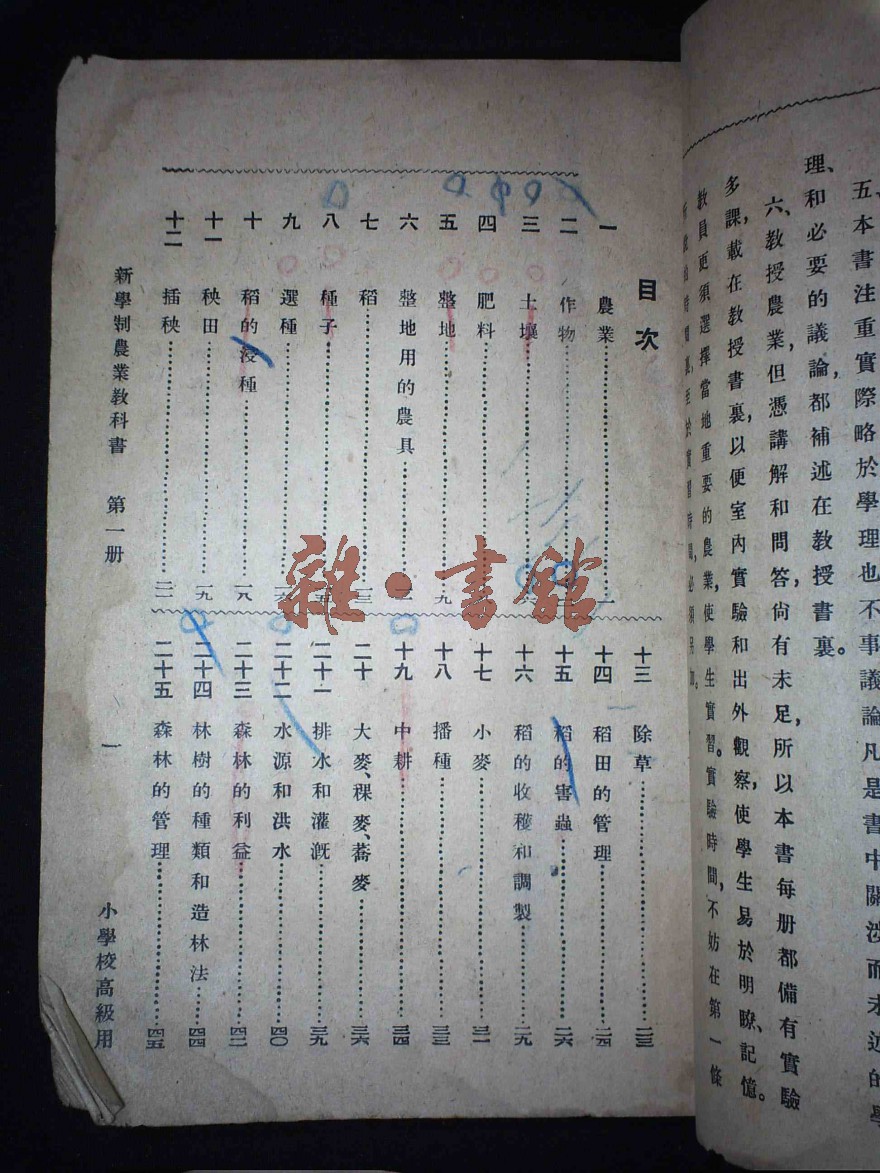 五、本書注重實際略於學理也不事議論凡是書中關涉而未述的學
理、和必要的議論，都補述在教授書裏。
六、教授農業，但憑講解和問答，尙有未足，所以本書每册都備有實驗
多課，載在教授書裏，以便室內實驗和出外觀察，使學生易於明瞭、記憶。
教員更須選擇當地重要的農業，使學生實習。實驗時間，不妨在第一條
時間裏，至於實習時間，必須另加。
目次
一 農業 一
二 作物
三 土壤 六
四 肥料
五 整地 九
六 整地用的農具
七 稻 一三
八 種子 一五
九 選種 一六
十 稻的浸種 一八
十一 秧田 一九
十二 插秧 二一
十三 除草 二三
十四 稻田的管理 二四
十五 稻的害蟲 二六
十六 稻的收穫和調製 二九
十七 小麥 三一
十八 播種 三三
十九 中耕 三四
二十 大麥、稞麥、蕎麥 三六
二十一 排水和灌漑 三九
二十二 水源和洪水 四〇
二十三 森林的利益 四二
二十四 林樹的種類和造林法 四四
二十五 森林的管理 四五
新學制農業教科書 第一册 一 小學校高級用
雜·書館